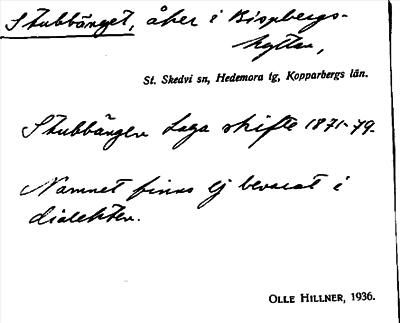 Stubbänget, åker i Bispbergs-
hyttan,
St. Skedvi sn, Hedemora tg, Kopparbergs län.
Stubbängen Laga skifte 1871-79.
Namnet finns ej bevarat i
dialekten.
OLLE HILLNER, 1936.